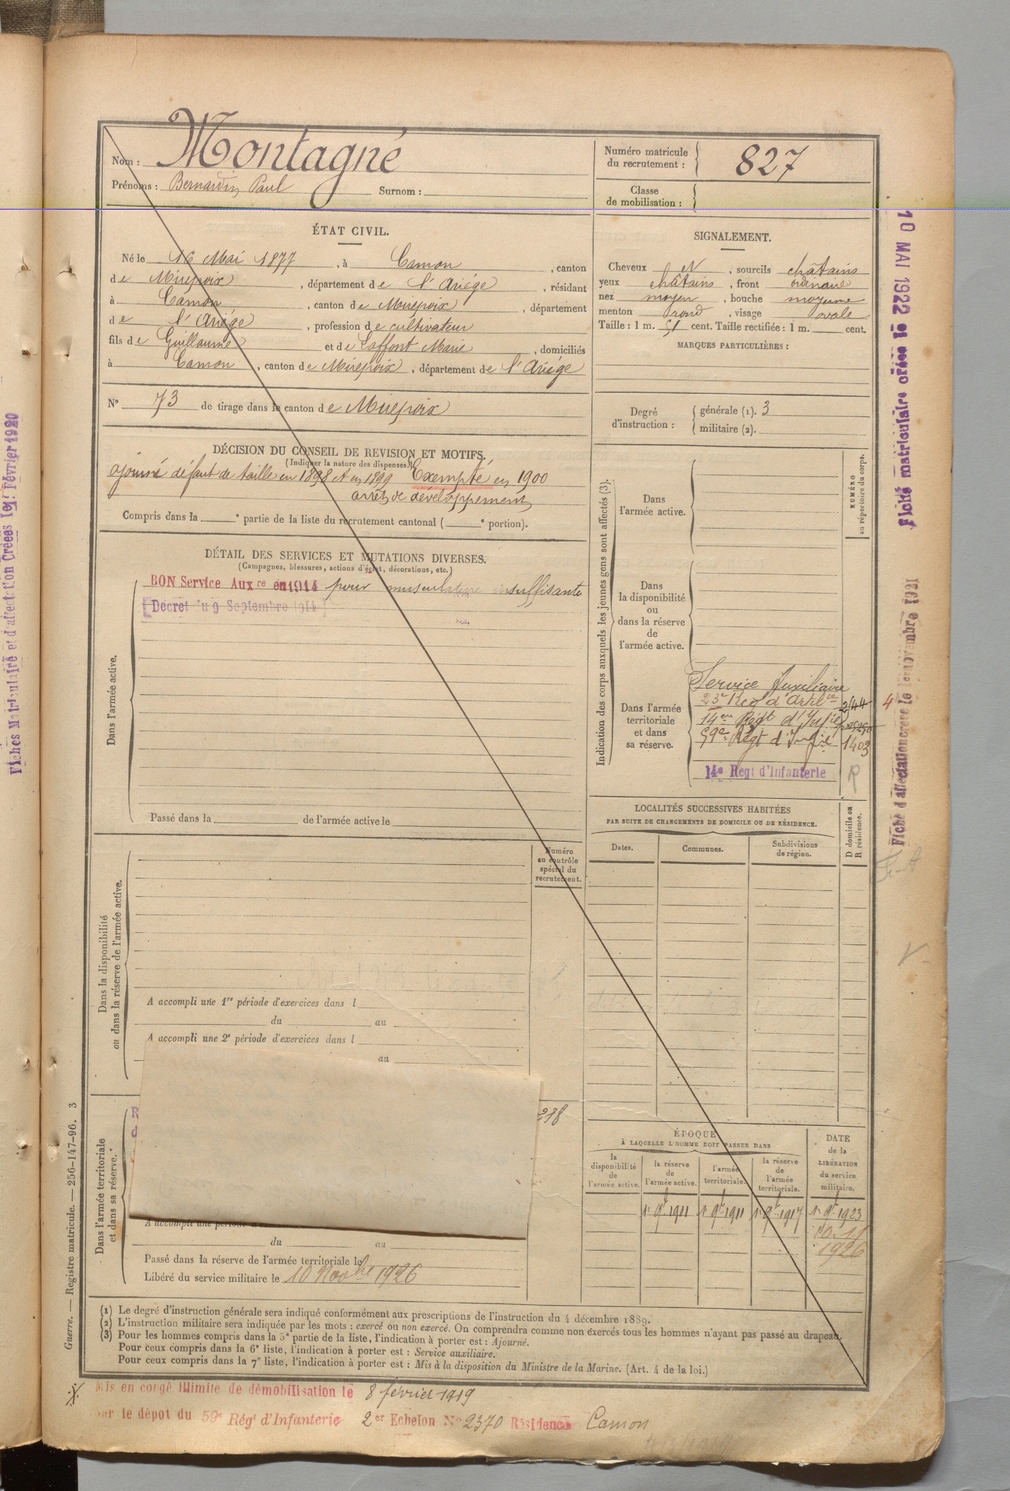 Nom : Montagné
Prénoms : Bernardin Paul Surnom :
Numéro matricule
du recrutement : 827
Classe
de mobilisation :
ÉTAT CIVIL.
Né le 16 Mai 1877, à Camon, canton
de Mirepoix, département de l'Ariège, résidant
à Camon, canton de Mirepoix, département
de l'Ariège, profession de cultivateur
fils de Guillaume et de Laffont Marie, domiciliés
à Camon, canton de Mirepoix, département de l'Ariège
N° 73 de tirage dans le canton de Mirepoix
DÉCISION DU CONSEIL DE REVISION ET MOTIFS.
(Indiquer la nature des dispenses.)
ajourné défaut de taille en 1898 et en 1899 Exempté en 1900
arrêt de développement
Compris dans la e partie de la liste du recrutement cantonal ( e portion).
SIGNALEMENT.
Cheveux N, sourcils châtains
yeux châtains, front ordinaire
nez moyen, bouche moyenne
menton rond, visage ovale
Taille : 1 m. 51 cent. Taille rectifiée : 1 m. cent.
MARQUES PARTICULIÈRES :
Degré
d'instruction :
générale (1). 3
militaire (2).
DÉTAIL DES SERVICES ET MUTATIONS DIVERSES.
(Campagnes, blessures, actions d'éclat, décorations, etc.)
Dans l'armée active.
BON Service Auxre en 1914 pour musculature insuffisante
Décret du 9 Septembre 1914
Passé dans la de l'armée active le
Indication des corps auxquels les jeunes gens sont affectés (3).
NUMÉRO
au répertoire du corps.
Dans
l'armée active.
Dans
la disponibilité
ou
dans la réserve
de
l'armée active.
Dans l'armée
territoriale
et dans
sa réserve.
Service Auxiliaire
23e Reg d'Artie
14me Régt d'Infie
59e Régt d'Infie 1403
14e Régt d'Infanterie R
LOCALITÉS SUCCESSIVES HABITÉES
PAR SUITE DE CHANGEMENTS DE DOMICILE OU DE RÉSIDENCE.
Dates.
Communes.
Subdivisions
de région.
D domicile ou
R résidence.
Dans la disponibilité
ou dans la réserve de l'armée active.
Numéro
au contrôle
spécial du
recrutement.
A accompli une 1re période d'exercices dans l
du au
A accompli une 2e période d'exercices dans l
au
Dans l'armée territoriale
et dans sa réserve.
238
A accompli une période
du au
Passé dans la réserve de l'armée territoriale le
Libéré du service militaire le 10 Novbre 1926
ÉPOQUE
À LAQUELLE L'HOMME DOIT PASSER DANS
la
disponibilité
de
l'armée active.
la réserve
de
l'armée active.
l'armée
territoriale.
la réserve
de
l'armée
territoriale.
DATE
de la
LIBÉRATION
du service
militaire.
1r 9e 1911 1r 9e 1911 1r 9e 1917 1r 9e 1923
1926
(1) Le degré d'instruction générale sera indiqué conformément aux prescriptions de l'instruction du 4 décembre 1889.
(2) L'instruction militaire sera indiquée par les mots : exercé ou non exercé. On comprendra comme non exercés tous les hommes n'ayant pas passé au drapeau.
(3) Pour les hommes compris dans la 5e partie de la liste, l'indication à porter est : Ajourné.
Pour ceux compris dans la 6e liste, l'indication à porter est : Service auxiliaire.
Pour ceux compris dans la 7e liste, l'indication à porter est : Mis à la disposition du Ministre de la Marine. (Art. 4 de la loi.)
Mis en congé illimité de démobilisation le 8 février 1919
par le dépôt du 59e Régt d'Infanterie 2er Echelon No 2370 Résidence Camon
Guerre. — Registre matricule. — 256-147-96. 3
Fiches Matriculaire et d'affectation Créées le 1er Février 1920
Fiche matriculaire créée le 10 MAI 1922
Fiche d'affectation créée le novembre 1921